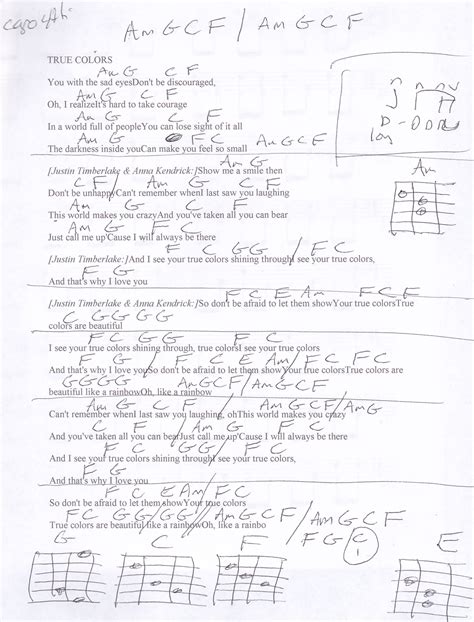 capo 4th
Am G C F / Am G C F
TRUE COLORS
Am G C F
You with the sad eyesDon't be discouraged,
Am G C F
Oh, I realizeIt's hard to take courage
Am G C F
In a world full of peopleYou can lose sight of it all
Am G F C F C Am G C F
The darkness inside youCan make you feel so small
Am G
[Justin Timberlake & Anna Kendrick:]Show me a smile then
C F / Am G C F
Don't be unhappyCan't remember whenI last saw you laughing
Am G C F
This world makes you crazyAnd you've taken all you can bear
Am G C F
Just call me up'Cause I will always be there
F C G G / F C
[Justin Timberlake:]And I see your true colors shining throughI see your true colors,
F G
And that's why I love you
F C E Am F C F
[Justin Timberlake & Anna Kendrick:]So don't be afraid to let them showYour true colorsTrue
C G G G G
colors are beautiful
F C G G F C
I see your true colors shining through, true colorsI see your true colors
F G / F C E Am / F C F C
And that's why I love youSo don't be afraid to let them showYour true colorsTrue colors are
G G G G Am G C F / Am G C F
beautiful like a rainbowOh, like a rainbow
Am G C F Am G C F / Am G
Can't remember whenI last saw you laughing, ohThis world makes you crazy
C F Am G C F
And you've taken all you can bearJust call me up'Cause I will always be there
F C G G F C
And I see your true colors shining throughI see your true colors,
F G
And that's why I love you
F C E Am / F C
So don't be afraid to let them showYour true colors
F C G G / G G / Am G C F / Am G C F
True colors are beautiful like a rainbowOh, like a rainbo
F G C
1
G C F E
Am
D - D D D